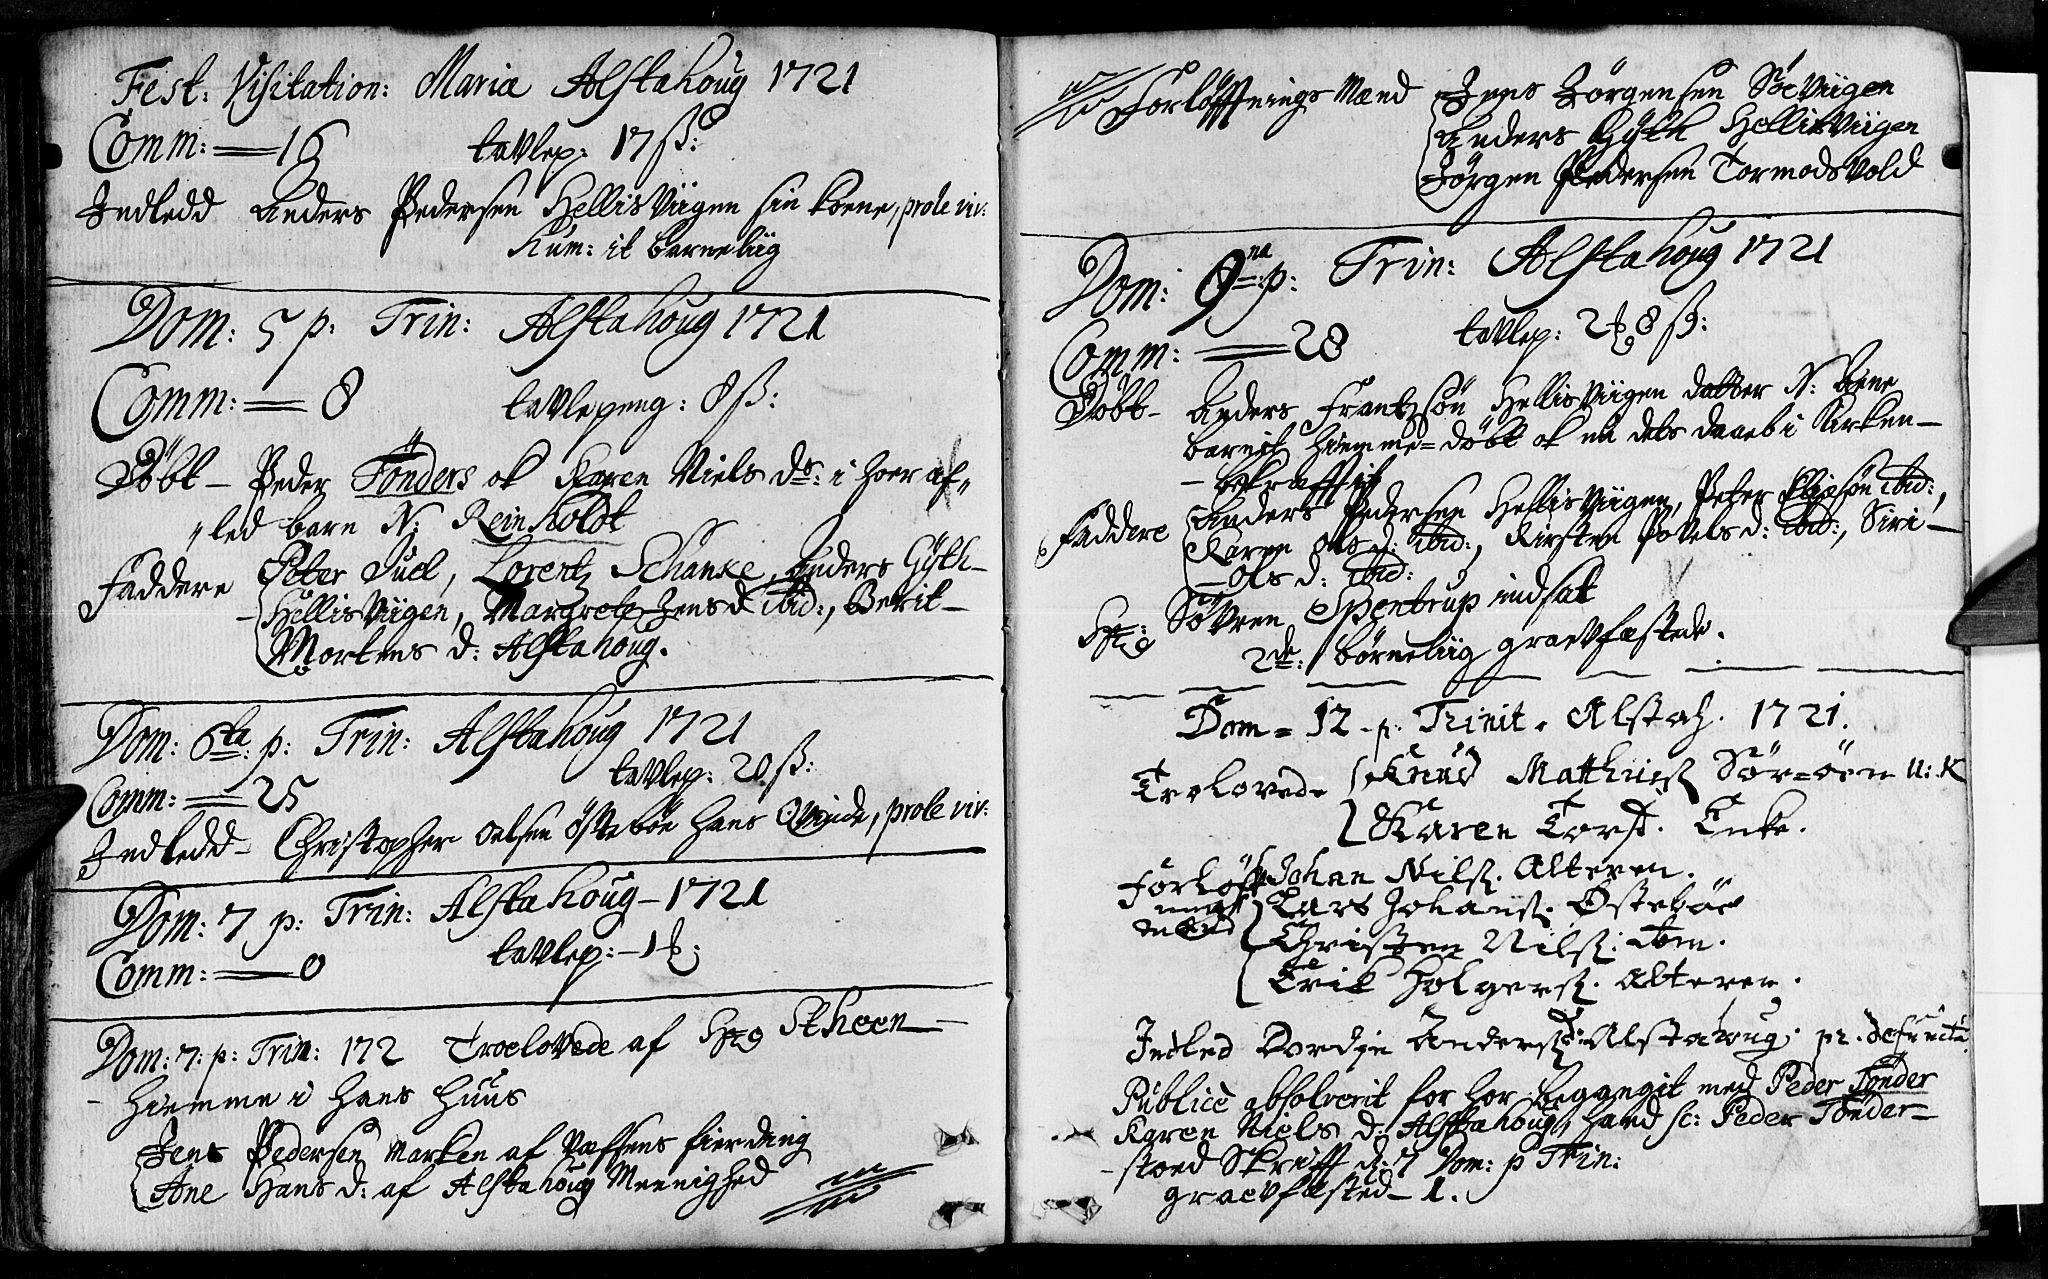 Fest: Visitation: Mariæ Alstahoug 1721
Comm: = 16 tavlep: 17 ß:
Indledd Anders Pedersen HellisViigen sin koene, prole viv:
hum: it barneliig
Dom: 5 p: Trin: Alstahoug 1721
Comm: = 8 tavlepeng: 8 ß:
Döbt – Peder Tönders ok Karen Niels ds: i hoer af,,
,,led barn N: Reinholdt
Faddere Peter Juel, Lorentz Schanke, Anders Gyth –
– HellisViigen, Margrete Jens d ibid:, Berit –
Mortens d: Alstahoug.
Dom: 6ta: p: Trin: Alstahoug 1721
tavlep: 20 ß:
Comm: = 25
Indledd – Christopher Oelsen östeböe hans Qvinde, prole viv:
Dom: 7 p: Trin: Alstahoug – 1721
Comm: = 0 tavlep: – 1
Dom: 7: p: Trin: 172 Troelovede af Hr: Stheen –
– hiemme i hans huus
Jens Pedersen Marken af Vefsens fierding
Ane Hans d: af Alstahoug Meenighed
Forlöffnings Mænd Jens Jörgensen SöeViigen
Anders Gyth HellisViigen
Jörgen Pedersen Tormodsvold
Dom: 9na: p: Trin: Alstahoug 1721
Comm: = 28 tavlep: 2 8 ß:
Döbt – Anders Frantzsön HellisViigen datter N: Aene
barnit hiemme = döbt ok nu dets daab i Kirken –
– bekræfftit
Faddere Anders Pedersen HellisViigen, Peter ibid:,
Karen Ols d: ibid:, Kirsten Povels d: ibid:, Siri –
– Ols d: ibid:
Söfren Spentrup indsat
2de: börneliig graevfæstede.
Dom = 12 – p. Trinit. Alstah. 1721.
Trolovede Knud Matthiesß Sör=öen u: K
Karen Torsd. Enke.
Forlöff Johan Nilsß. Alteren.
nings Lars Johansß. Östeböe
mænd Christen Nilsß. ibm.
Erik Holgersß. Alteren.
Indled Dordje Andersd: Alstahoug. pr. defuncta.
Publicè absolverit for hor begangit med Peder Tönder
Karen Niels d: Alstahoug, hand sc: Peder Tönder –
– stoed Skrifft d: 7 Dom: p Trin:
graevfæsted – 1.